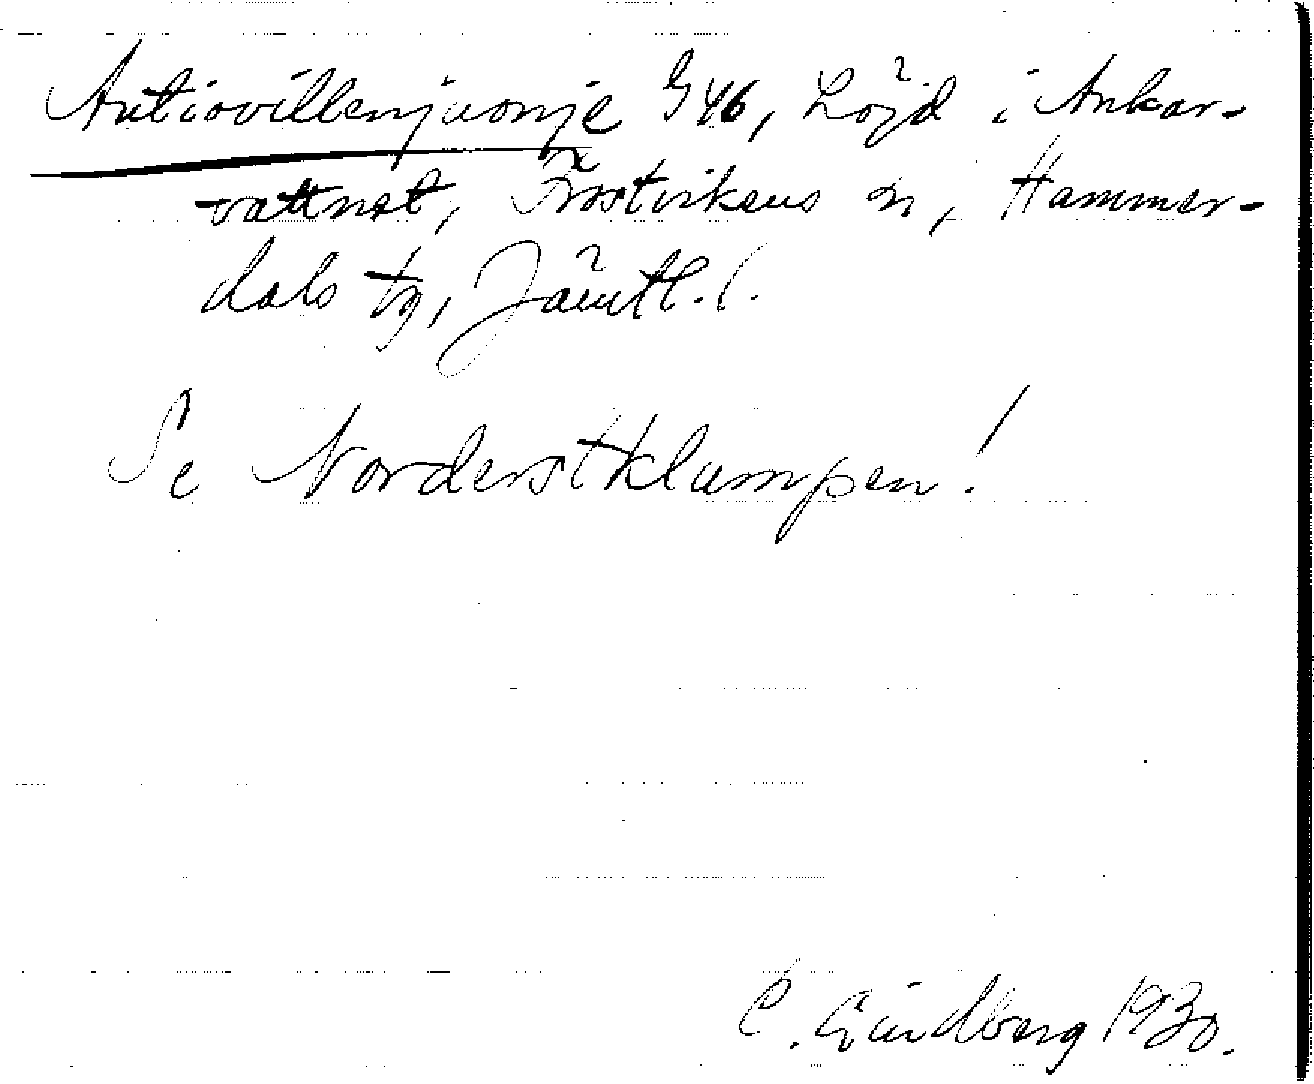 Autiovillenjuonje G46, höjd i Ankar-
vattnet, Frostvikens sn, Hammer-
dals tg, Jämtl. l.
Se Norderstklumpen!
C. Lindberg 1930.